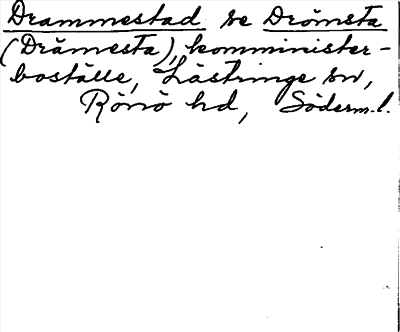 Drammestad se Drömsta
(Drämesta), komminister-
boställe, Lästringe sn,
Rönö hd, Söderm.l.